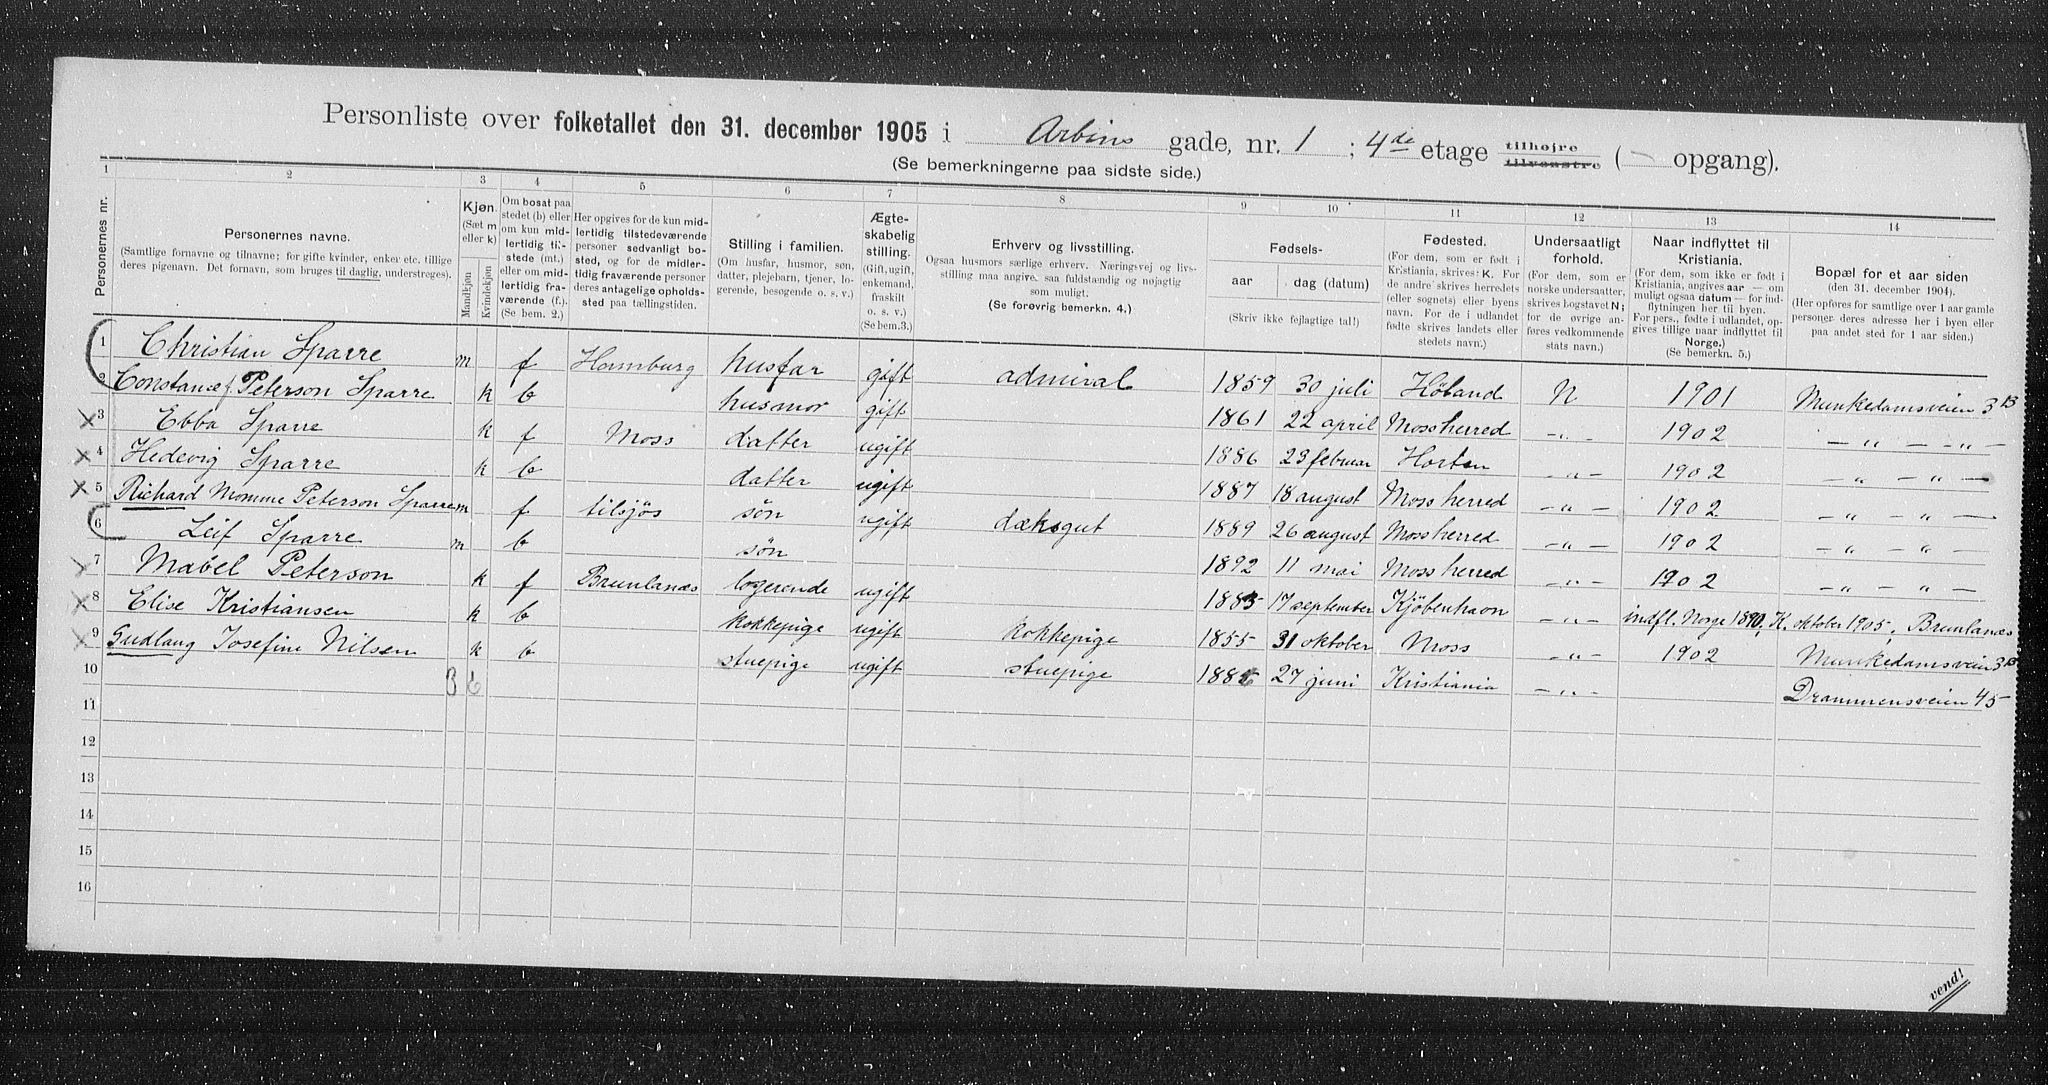 Personliste over folketallet den 31. december 1905 i Arbins gade, nr. 1 ; 4de etage tilhøjre tilvenstre ( — opgang).
(Se bemerkningerne paa sidste side.)
1 2 3 4 5 6 7 8 9 10 11 12 13 14
Personernes nr.
Personernes navne. (Samtlige fornavne og tilnavne; for gifte kvinder, enker etc. tillige deres pigenavn. Det fornavn, som bruges til daglig, understreges).
Kjøn. (Sæt m eller k) Mandkjøn. Kvindekjøn.
Om bosat paa stedet (b) eller om kun midlertidig tilstede (mt.) eller om midlertidig fraværende (f.). (Se bem. 2.)
Her opgives for de kun midlertidig tilstedeværende personer sedvanligt bosted, og for de midlertidig fraværende personer deres antagelige opholdssted paa tællingstiden.
Stilling i familien. (Om husfar, husmor, søn, datter, plejebarn, tjener, logerende, besøgende o. s. v.)
Ægteskabelig stilling. (Gift, ugift, enkemand, fraskilt o. s. v.) (Se bem. 3.)
Erhverv og livsstilling. Ogsaa husmors særlige erhverv. Næringsvej og livsstilling maa angive. saa fuldstændig og nøjagtig som muligt. (Se forøvrig bemerkn. 4.)
Fødsels- aar dag (datum) (Skriv ikke fejlagtige tal!)
Fødested. (For dem, som er født i Kristiania, skrives: K. For de andre skrives herredets (eller sognets) eller byens navn. For de i udlandet fødte skrives landets eller stedets navn.)
Undersaatligt forhold. (For dem, som er norske undersaatter, skrives bogstavet N; for de øvrige anføres vedkommende stats navn.)
Naar indflyttet til Kristiania. (For dem, som ikke er født i Kristiania, angives aar — om muligt ogsaa datum — for indflytningen her til byen. For pers., fødte i udlandet, opgives tillige naar indflyttet til Norge.) (Se bemerkn. 5.)
Bopæl for et aar siden (den 31. december 1904). (Her opføres for samtlige over 1 aar gamle personer deres adresse her i byen eller paa andet sted for 1 aar siden.)
1 Christian Sparre m f Hamburg husfar gift admiral 1859 30 juli Høland N 1901 Munkedamsveien 3 B
2 Constance f. Peterson Sparre k b husmor gift 1861 22 april Mossherred —„— 1902 —„— —„—
3 Ebba Sparre k f Moss datter ugift 1886 23 februar Horten —„— 1902 —„— —„—
4 Hedevig Sparre k b datter ugift 1887 18 august Mossherred —„— 1902 —„— —„—
5 Richard Momme Peterson Sparre m f tilsjøs søn ugift dæksgut 1889 26 august Mossherred —„— 1902 —„— —„—
6 Leif Sparre m b søn 1892 11 mai Mossherred —„— 1902 —„— —„—
7 Mabel Peterson k f Brunlanæs logerende ugift 1883 17 september Kjöbenhavn —„— indfl. Norge 1890, K. oktober 1905, Brunlanæs
8 Elise Kristiansen k b kokkepige ugift kokkepige 1855 31 oktober Moss —„— 1902 Munkedamsveien 3 B
9 Gudlaug Josefine Nilsen k b stuepige ugift stuepige 27 juni Kristiania —„— Drammensveien 45
10 3 6
11
12
13
14
15
16
vend!